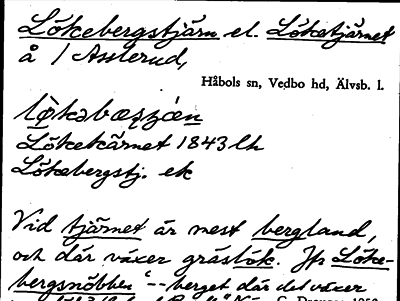 Lökebergstjärn el. Löketjärnet
å / Asslerud,
Håbols sn, Vedbo hd, Älvsb. l.
Lökekärnet 1843 Lh
Lökebergstj. ek
Vid tjärnet är mest bergland,
och där växer gräslök. Jfr Löke-
bergsnöbben -- berget där det växer